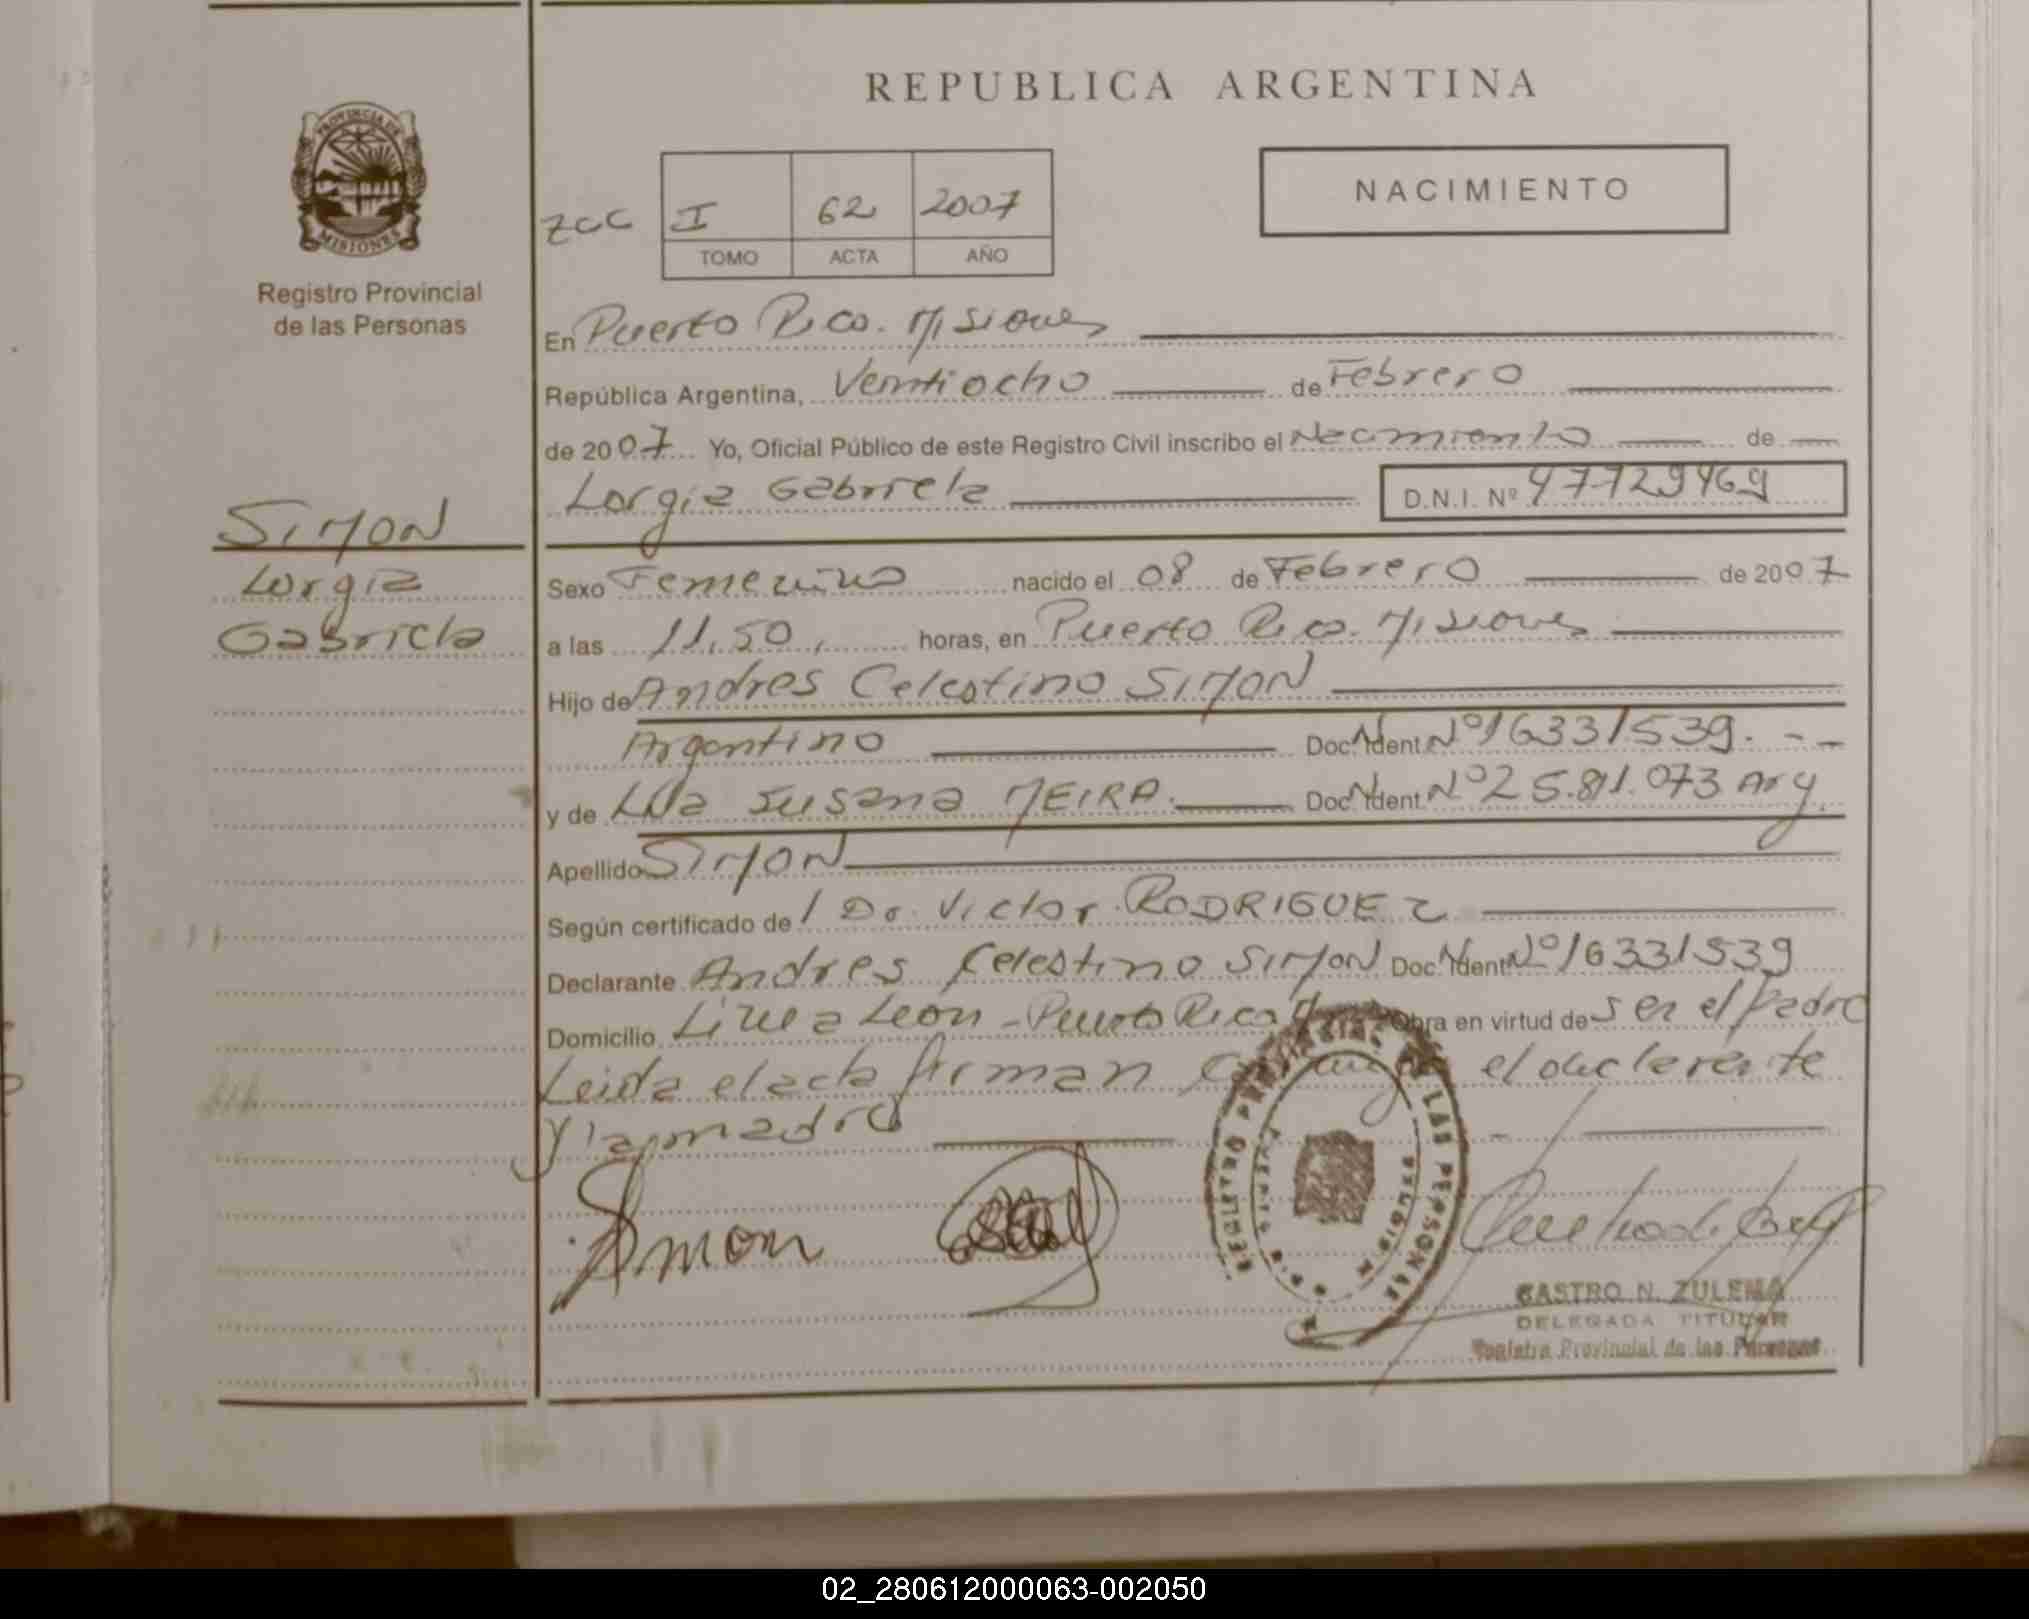 REPUBLICA ARGENTINA
PROVINCIA DE
MISIONES
Registro Provincial
de las Personas
NACIMIENTO
zcc I 62 2007
TOMO ACTA AÑO
En Puerto Rico. Misiones
República Argentina, Ventiocho de Febrero
de 2007 Yo, Oficial Público de este Registro Civil inscribo el Nacimiento de
Lorgia Gabriela D.N.I. Nº 47729469
SIMON
Lorgia
Gabriela
Sexo Femenino nacido el 08 de Febrero de 2007
a las 11.50, horas, en Puerto Rico. Misiones
Hijo de Andres Celestino SIMON
Argentino Doc. Ident. Nº 16331539.--
y de Susana MEIRA. Doc. Ident. Nº 25.811.073 Arg.
Apellido SIMON
Según certificado de Dr. Victor RODRIGUEZ
Declarante Andres Celestino SIMON Doc. Ident. Nº 16331539
Domicilio Linea Leon - Puerto Rico Obra en virtud de ser el padre
Leida el acta firman el declarante
y la madre
Simon
REGISTRO PROVINCIAL DE LAS PERSONAS
CASTRO N. ZULEMA
DELEGADA TITULAR
Registro Provincial de las Personas
02_280612000063-002050